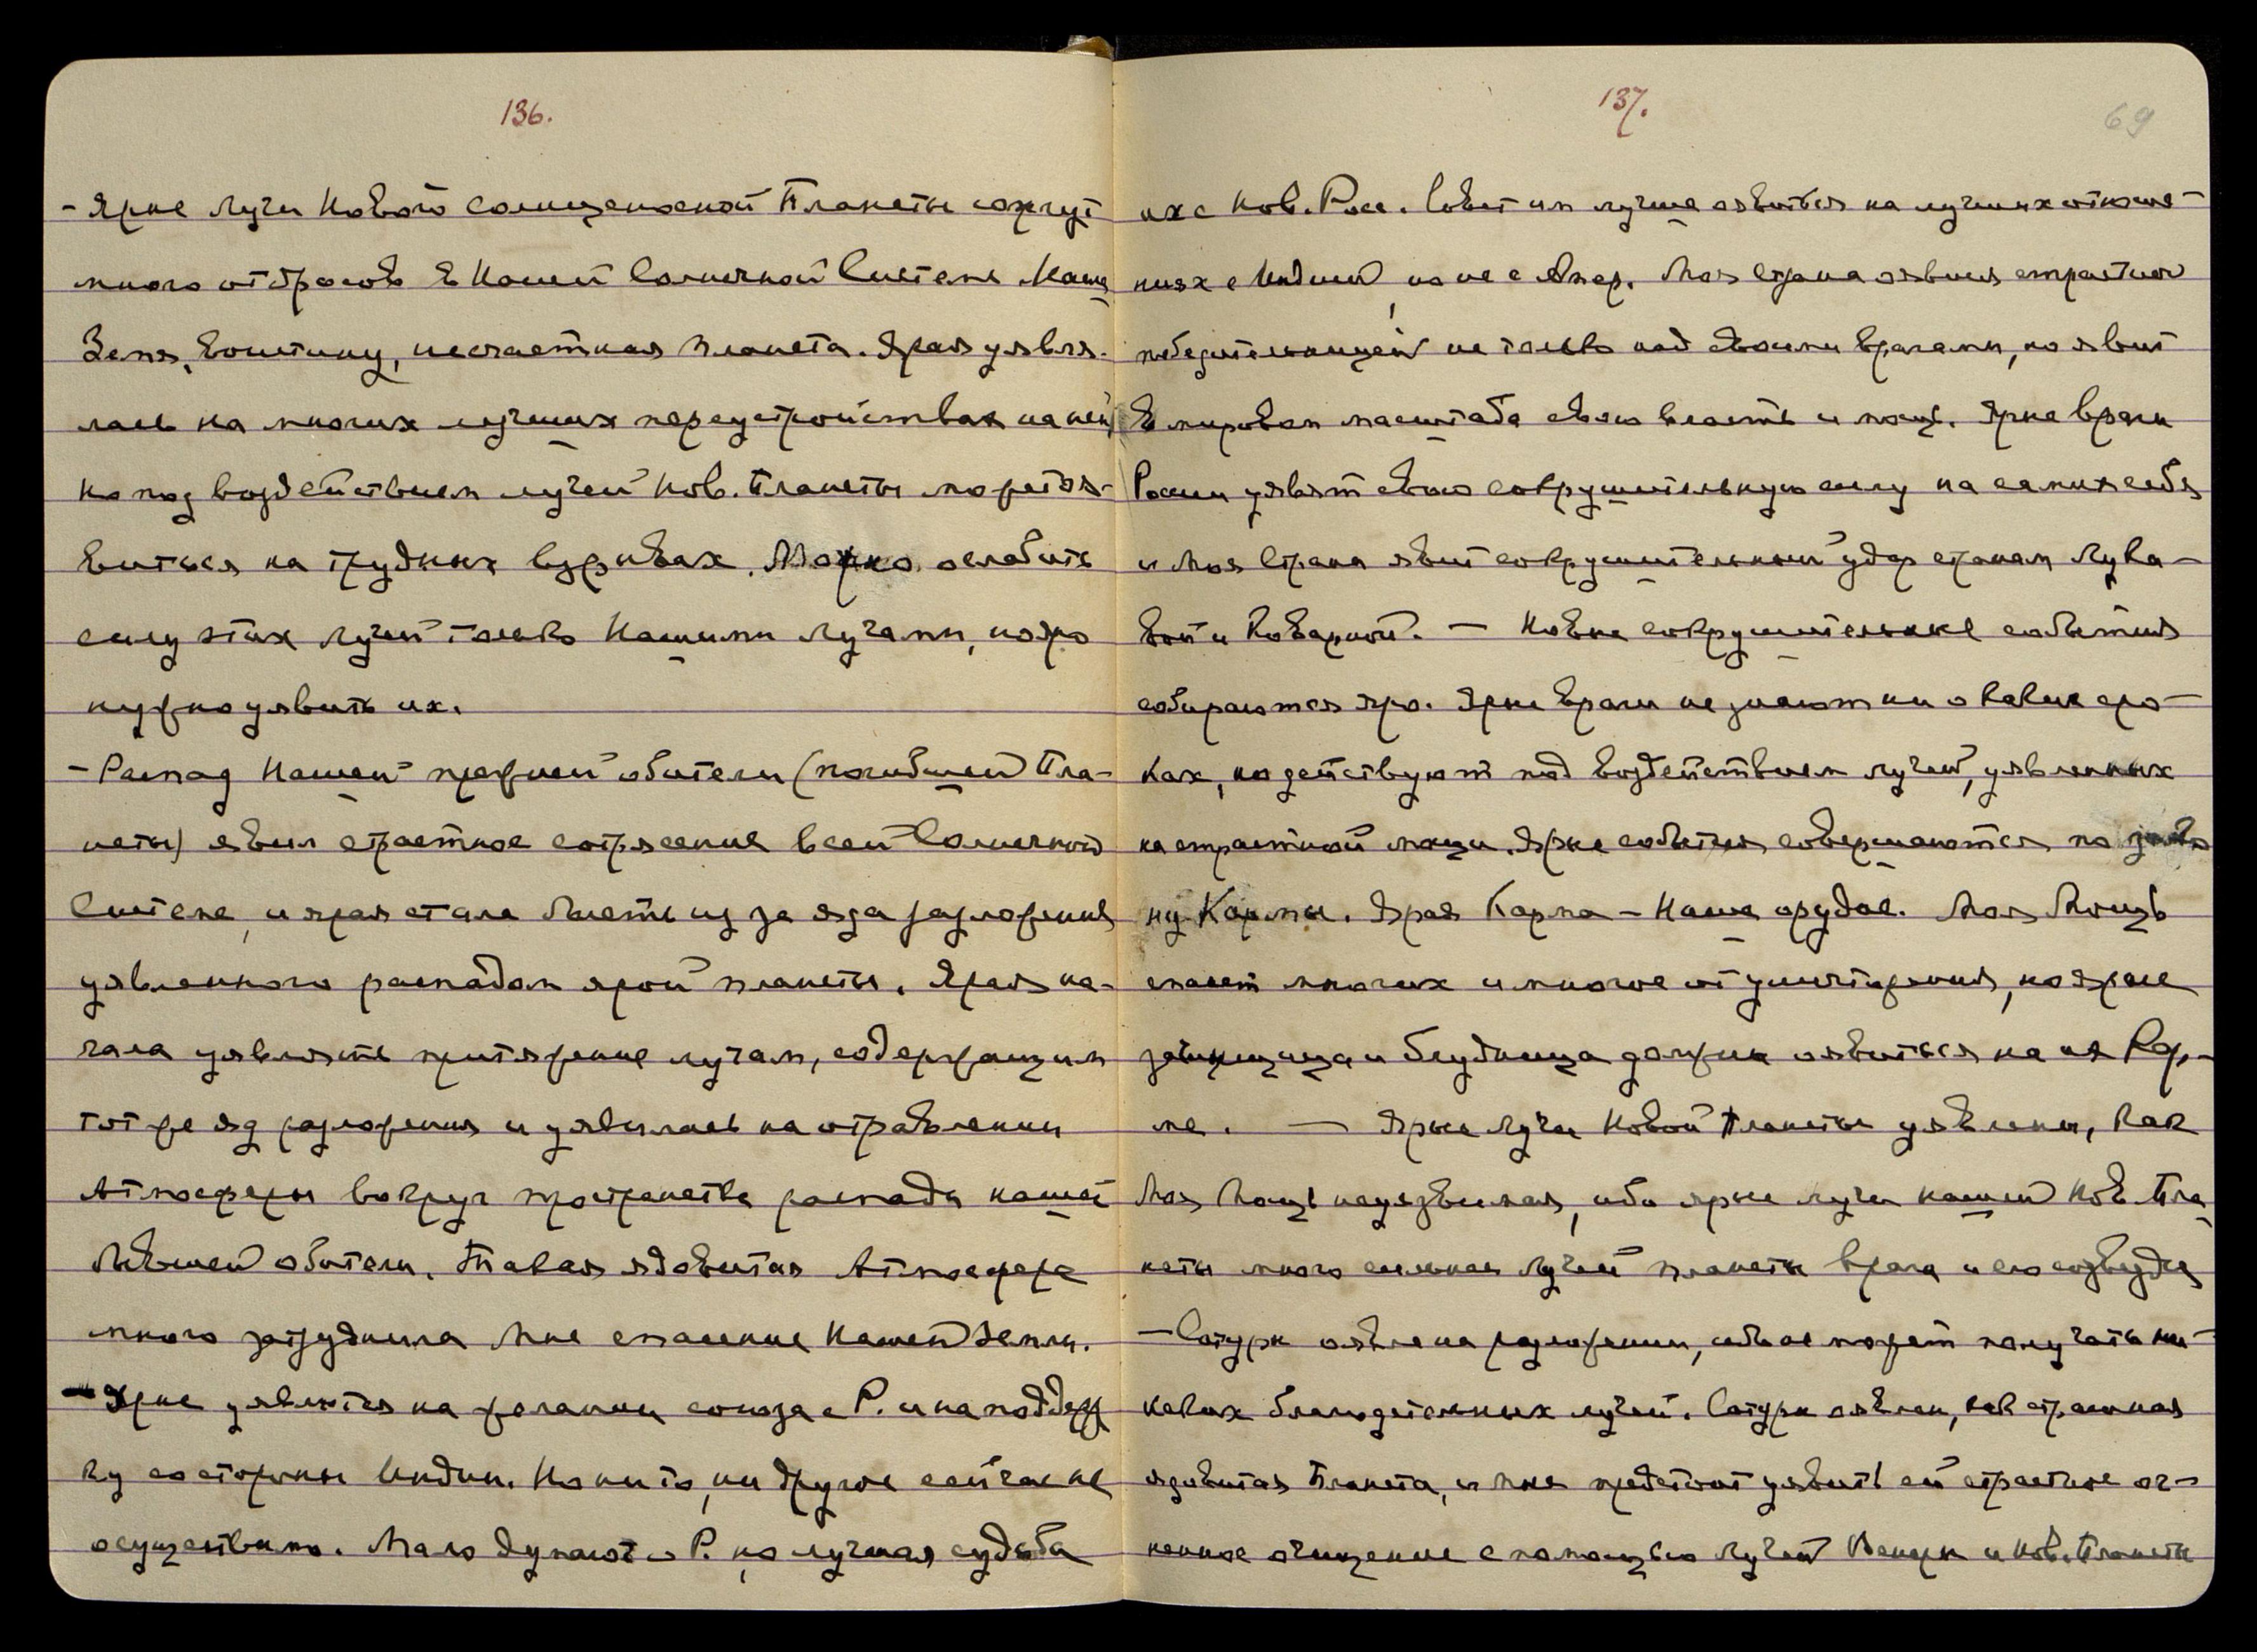 136.
- Ярые Лучи Новой солнценосной Планеты сожгут
много отбросов в Нашей Солнечной Системе. Наша
Земля, воистину, несчастная планета. Ярая уявля-
лась на многих лучших переустройствах на ней,
но под воздействием лучей Нов. Планеты может оя-
виться на трудных взрывах. Можно ослабить
силу этих Лучей только Нашими Лучами, но яро
нужно уявить их.
- Распад Нашей прежней обители (погибшей Пла-
неты) явил страстное сотрясение всей Солнечной
Системе, и ярая стала болеть из за яда разложения
уявленного распадом ярой планеты. Ярая на-
чала уявлять притяжение лучам, содержащим
тот же яд разложения и уявилась на отравлении
Атмосферы вокруг пространства распада нашей
бывшей обители. Такая ядовитая Атмосфера
много затруднила Мне спасение Нашей Земли.
- Ярые уявятся на желании союза с Р. и на поддерж
ку со стороны Индии. Но ни то, ни другое сейчас не
осуществимо. Мало думают о Р. но лучшая судьба
137.
69
их с Нов. Росс. Совет им лучше оявиться на лучших отноше-
ниях с Индией, но не с Амер. Моя Страна оявится страстной
победительницей не только над своими врагами, но явит
в мировом масштабе свою власть и мощь. Ярые враги
России уявят свою сокрушительную силу на самих себя
и Моя Страна явит сокрушительный удар странам Лука-
вой и Коварной. — Новые сокрушительные события
собираются яро. Ярые враги не знают ни о каких сро-
ках, но действуют под воздействием лучей, уявленных
на страстной мощи. Ярые события совершаются по зако
ну Кармы. Ярая Карма - Наше орудие. Моя Мощь
спасет многих и многое от уничтожения, но ярые
и блудница должны оявиться на их Кар-
ме. — Ярые Лучи Новой Планеты уявлены, как
Моя Мощь неуязвимая, ибо ярые лучи нашей Нов. Пла
неты много сильнее Лучей планеты врага и его созвездия
- Сатурн оявлен на разложении, и не может получать ни-
каких благодетельных лучей. Сатурн оявлен, как страшная
ядовитая Планета, и Мне предстоит уявить ей страстное ог-
ненное очищение с помощью Лучей Венеры и Нов. Планеты